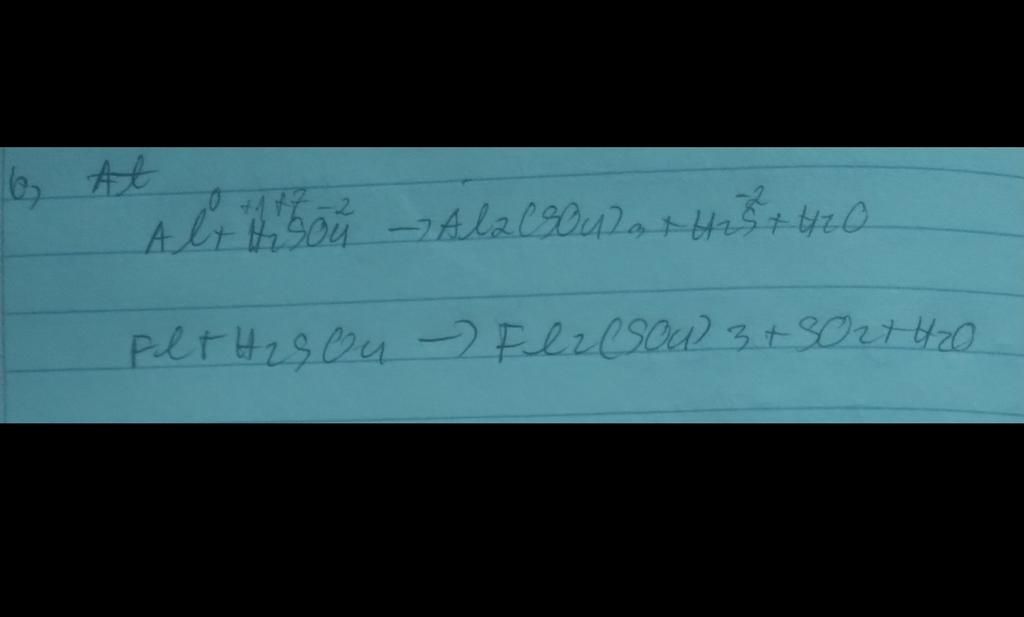 b, Al
Al⁰ + H₂⁺¹S⁺⁷O₄⁻² → Al₂(SO₄)₃ + H₂S⁻² + H₂O
Fe + H₂SO₄ → Fe₂(SO₄)3 + SO₂ + H₂O